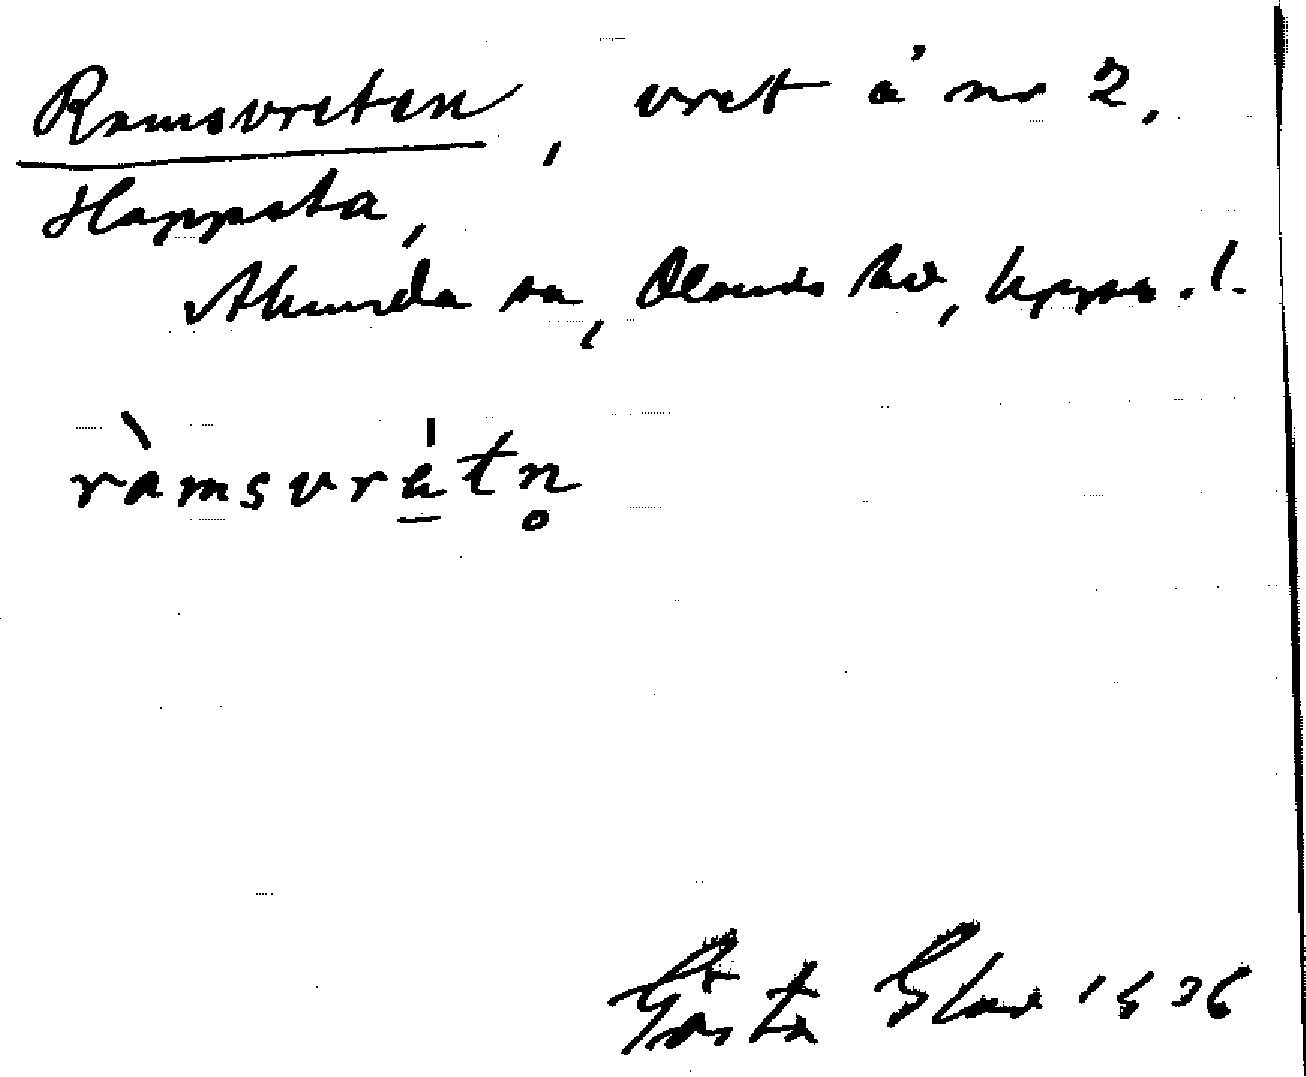 Ramsvreten, vret å nr 2,
Happsta,
Alunda sn, Olands hd, Upps. l.
ràmsvrétn̥
Gösta 1936